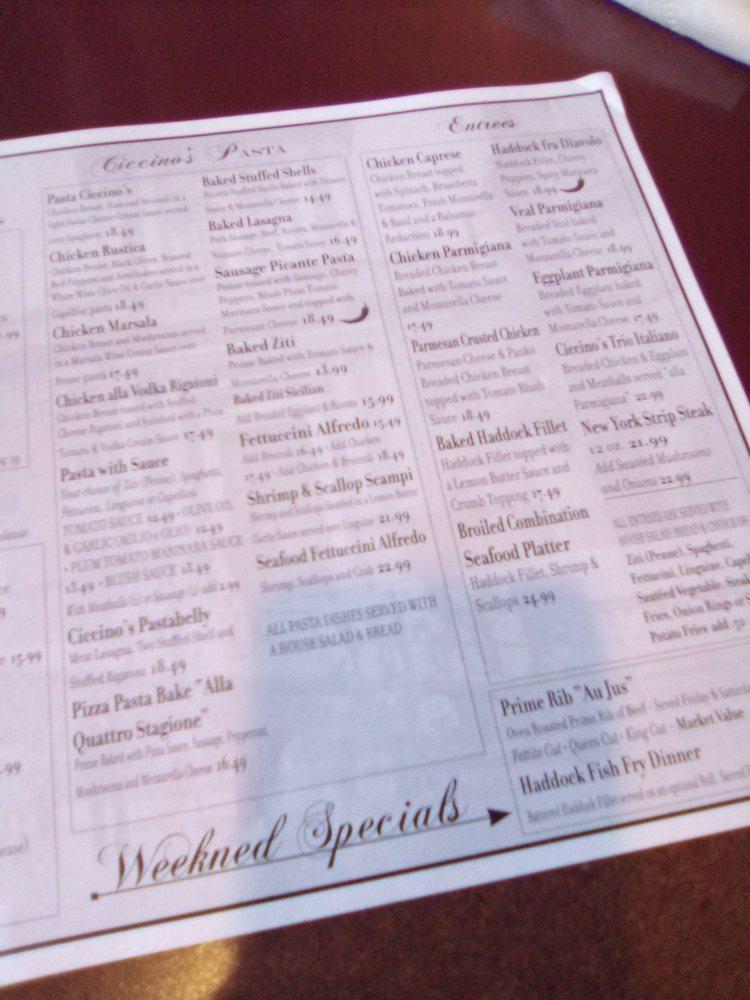 Ciccino's Pasta
Pasta Ciccino's
Chicken Breast, Ham and Broccoli in a
light Swiss Cheese Cream Sauce served
over Spaghetti 18.49
Chicken Rustica
Chicken Breast, Black Olives, Roasted
Red Peppers and Artichokes served in a
White Wine Olive Oil & Garlic Sauce over
Capellini pasta 18.49
Chicken Marsala
Chicken Breast and Mushrooms served
in a Marsala Wine Cream Sauce over
Penne pasta 17.49
Chicken alla Vodka Rigatoni
Chicken Breast tossed with Stuffed
Cheese Rigatoni and finished with a Plum
Tomato & Vodka Cream Sauce 17.49
Pasta with Sauce
Your choice of Ziti (Penne), Spaghetti,
Fettucini, Linguine or Capellini
TOMATO SAUCE 12.49 - OLIVE OIL
& GARLIC (AGLIO e OLIO) 12.49
- PLUM TOMATO MARINARA SAUCE
13.49 - BLUSH SAUCE 13.49
With Meatballs (2) or Sausage (2) add 2.99
Ciccino's Pastabelly
Meat Lasagna, Two Stuffed Shell and
Stuffed Rigatoni 18.49
Pizza Pasta Bake "Alla
Quattro Stagione"
Penne Baked with Pizza Sauce, Sausage, Pepperoni,
Mushrooms and Mozzarella Cheese 16.49
Baked Stuffed Shells
Ricotta Stuffed Shells Baked with Tomato
Sauce & Mozzarella Cheese 14.49
Baked Lasagna
Pork Sausage, Beef, Ricotta, Mozzarella &
Romano Cheese, Tomato Sauce 16.49
Sausage Picante Pasta
Penne tossed with Sausage, Cherry
Peppers, Blush Plum Tomato
Marinara Sauce and topped with
Parmesan Cheese 18.49
Baked Ziti
Penne Baked with Tomato Sauce &
Mozzarella Cheese 13.99
Baked Ziti Sicilian
Add Breaded Eggplant & Ricotta 15.99
Fettuccini Alfredo 15.49
Add Broccoli 16.49 - Add Chicken
17.49 - Add Chicken & Broccoli 18.49
Shrimp & Scallop Scampi
Shrimp and Scallops Sauteed in a Lemon Butter
Garlic Sauce served over Linguine 21.99
Seafood Fettuccini Alfredo
Shrimp, Scallops and Crab 22.99
ALL PASTA DISHES SERVED WITH
A HOUSE SALAD & BREAD
Entrees
Chicken Caprese
Chicken Breast topped
with Spinach, Bruschetta
Tomatoes, Fresh Mozzarella
& Basil and a Balsamic
Reduction 18.99
Chicken Parmigiana
Breaded Chicken Breast
Baked with Tomato Sauce
and Mozzarella Cheese
17.49
Parmesan Crusted Chicken
Parmesan Cheese & Panko
Breaded Chicken Breast
topped with Tomato Blush
Sauce 18.49
Baked Haddock Fillet
Haddock Fillet topped with
a Lemon Butter Sauce and
Crumb Topping 17.49
Broiled Combination
Seafood Platter
Haddock Fillet, Shrimp &
Scallops 24.99
Haddock fra Diavolo
Haddock Fillet, Cherry
Peppers, Spicy Marinara
Sauce 18.99
Veal Parmigiana
Breaded Veal baked
with Tomato Sauce and
Mozzarella Cheese 18.99
Eggplant Parmigiana
Breaded Eggplant baked
with Tomato Sauce and
Mozzarella Cheese 17.49
Ciccino's Trio Italiano
Breaded Chicken & Eggplant
and Meatballs served "alla
Parmigiana" 20.99
New York Strip Steak
12 oz. 21.99
Add Sauteed Mushrooms
and Onions 22.99
ALL ENTREES ARE SERVED WITH
HOUSE SALAD, BREAD & CHOICE OF
Ziti (Penne), Spaghetti,
Fettucini, Linguine,
Sautéed Vegetable,
Fries, Onion Rings or
Potato Fries add .50
Weekned Specials
Prime Rib "Au Jus"
Oven Roasted Prime Rib of Beef - Seved Friday &
Pettite Cut - Queen Cut - King Cut - Market Value
Haddock Fish Fry Dinner
Battered Haddock Fillet served on an optional Roll.
15.99